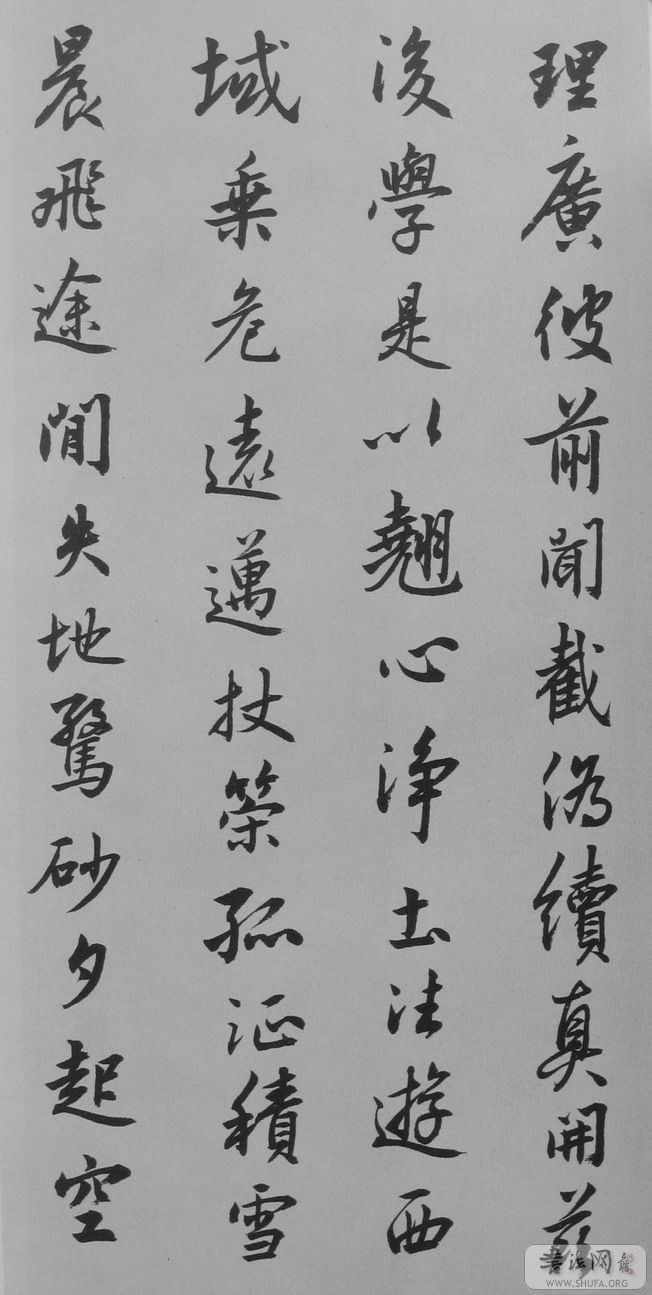 理廣彼前聞截偽續真開茲
後學是以翹心淨土法遊西
域乗危遠邁杖策孤征積雪
晨飛途閒失地驚砂夕起空
書法网
WWW.SHUFA.ORG